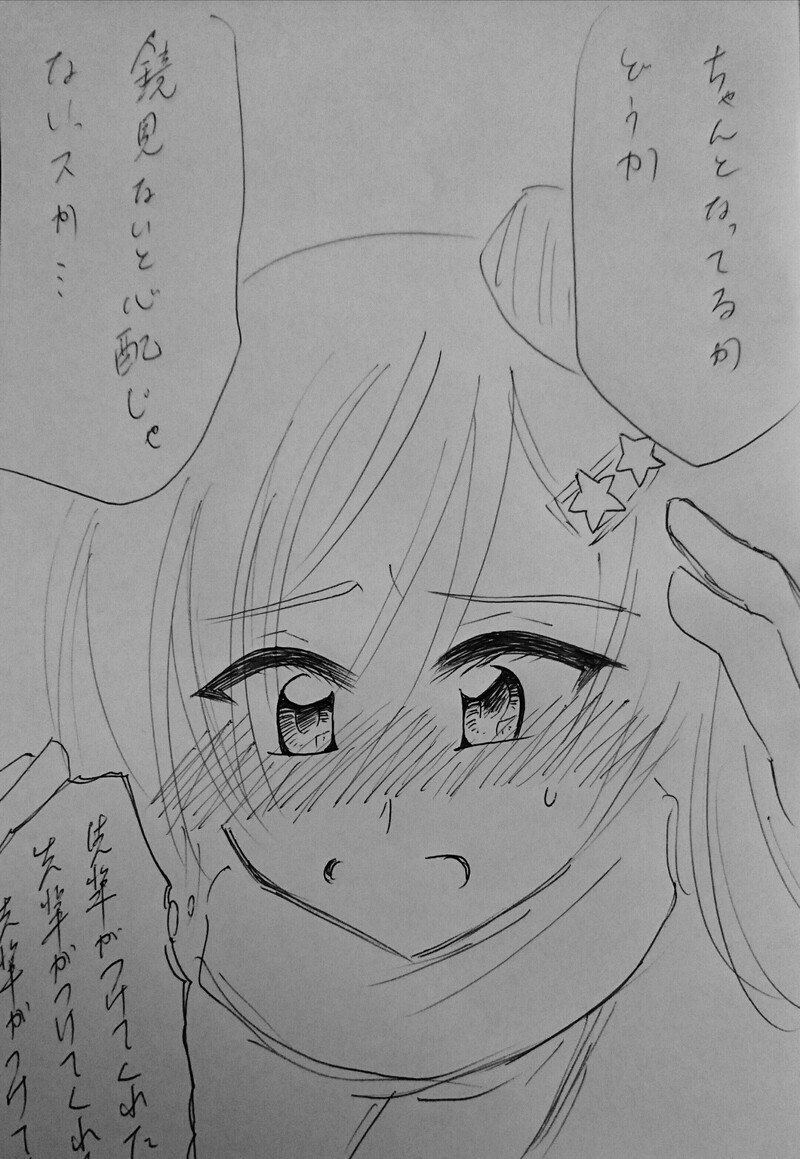 ちゃんとなってるか
どうか
鏡見ないと心配じゃ
ないっスか…
先輩がつけてくれた
先輩がつけてくれ
先輩がつけて